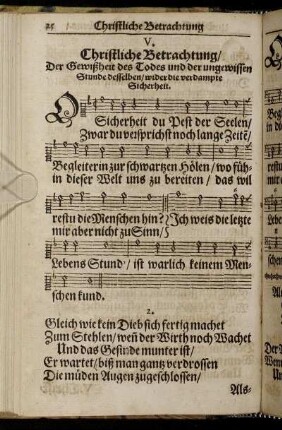 Christliche Betrachtung
V.
Christliche Betrachtung/
Der Gewißheit des Todes und der ungewissen
Stunde desselben/ wider die verdampte
Sicherheit.
O Sicherheit du Pest der Seelen/
Zwar du versprichst noch lange Zeitē/
Begleiterin zur schwartzen Hölen/ wo füh-
in dieser Welt uns zu bereiten/ das wil
restu die Menschen hin? Ich weis die letzte
mir aber nicht zu Sinn/
Lebens Stund'/ ist warlich keinem Men-
schen kund.
2.
Gleich wie kein Dieb sich fertig machet
Zum Stehlen/ weñ der Wirth noch Wachet
Und das Gesinde munter ist/
Er wartet/ biß man gantz verdrossen
Die müden Augen zugeschlossen/
Als-